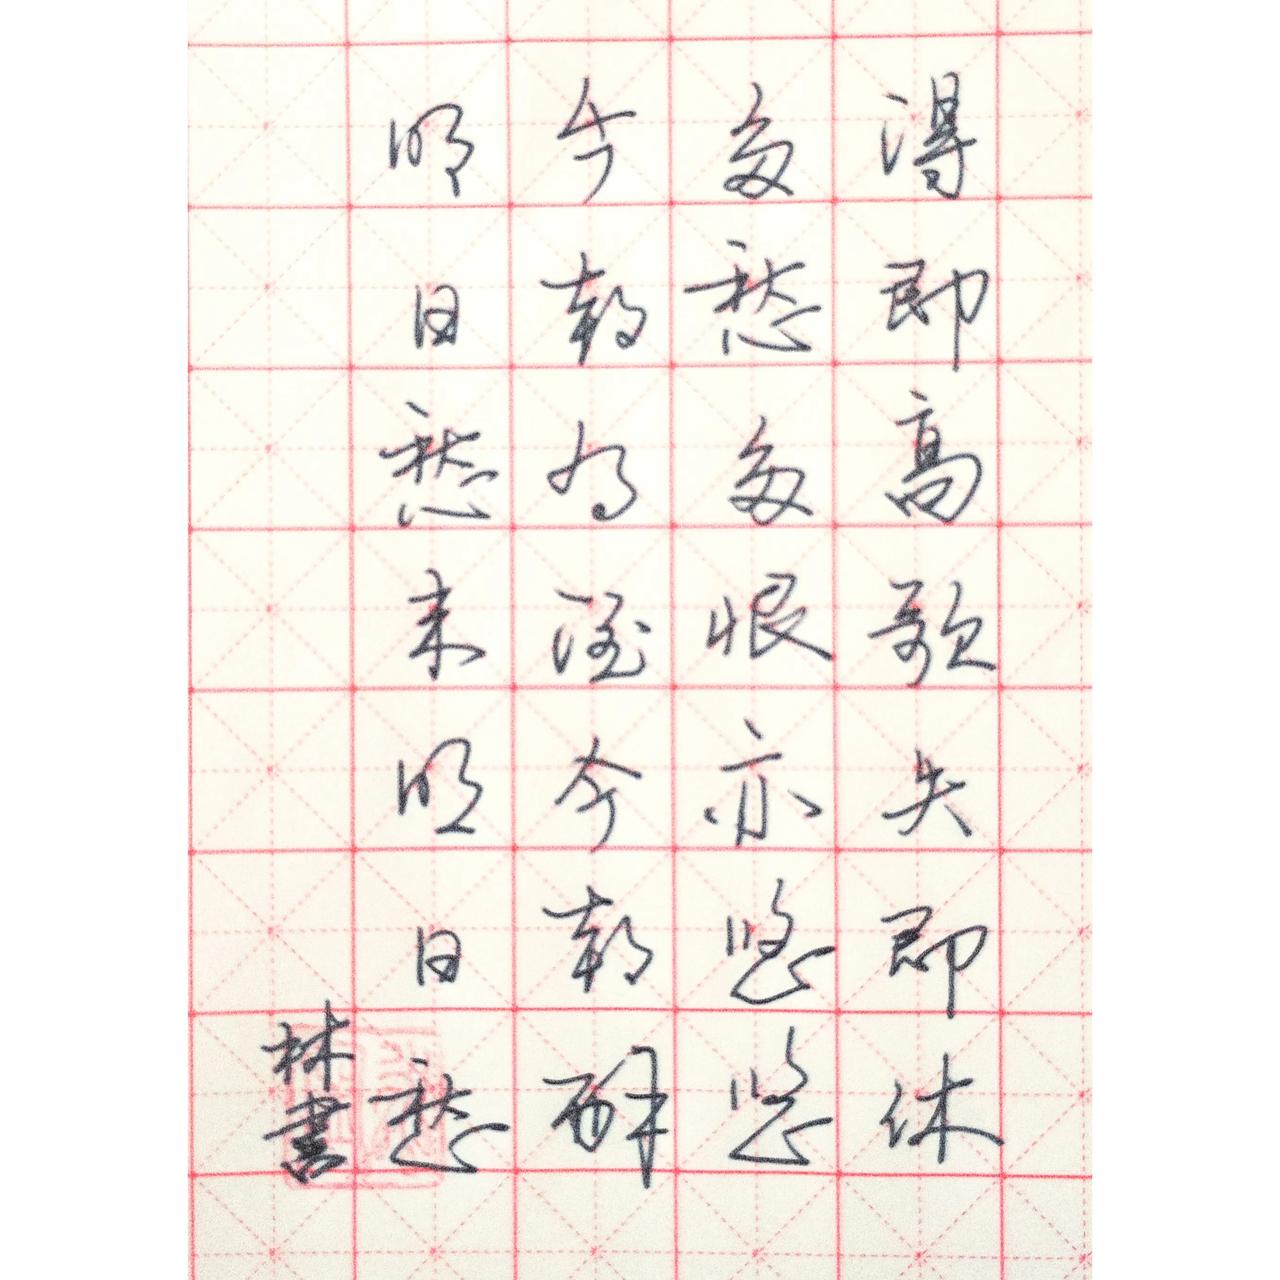 得即高歌失即休
多愁多恨亦悠悠
今朝有酒今朝醉
明日愁来明日愁
林書